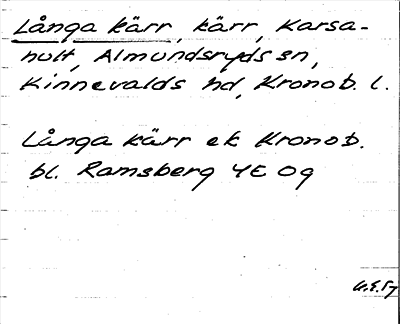 Långa kärr, kärr, Karsa-
hult, Almundsryds sn,
Kinnevalds hd, Kronob. l.
Långa kärr ek Kronob.
bl. Ramsberg 4E 0g